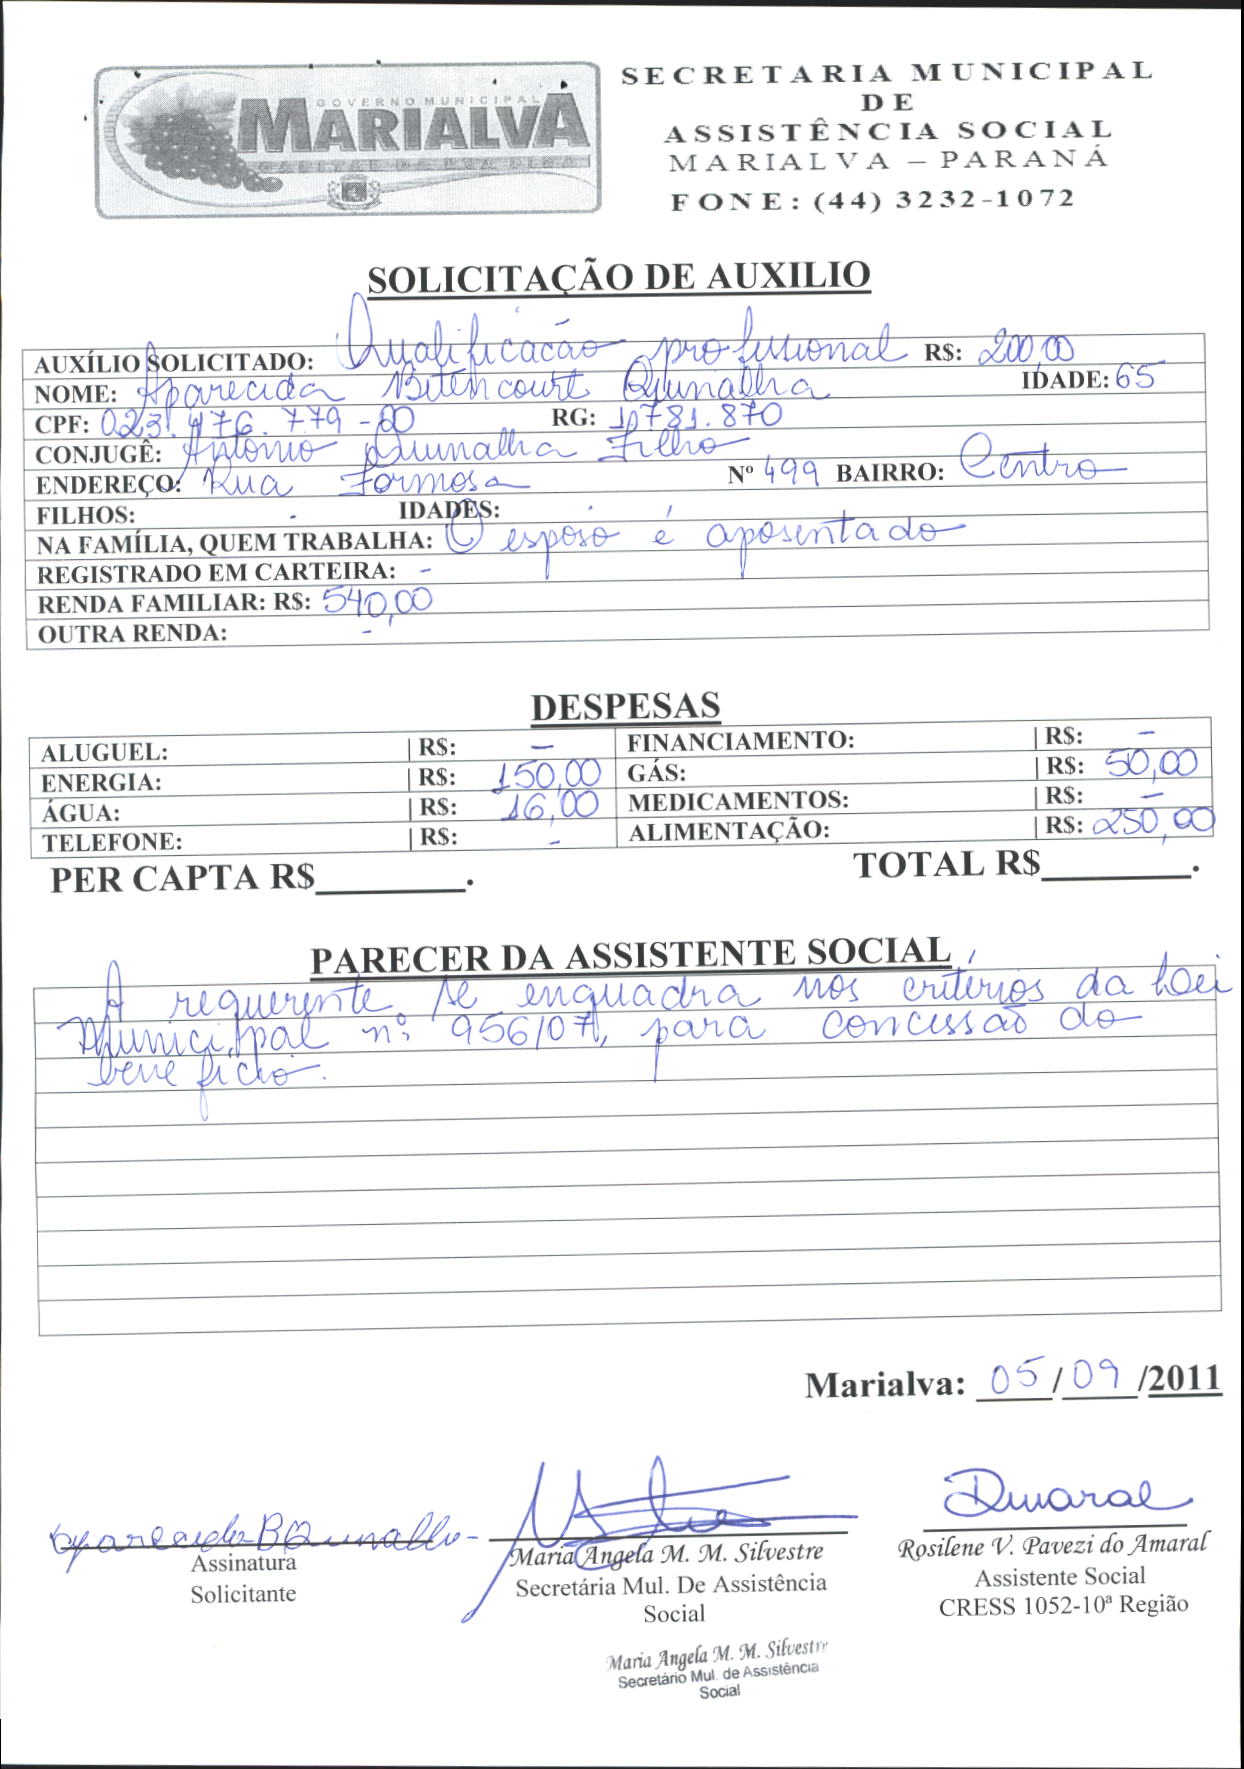 GOVERNO MUNICIPAL
MARIALVA
CAPITAL DA UVA FINA
SECRETARIA MUNICIPAL
DE
ASSISTÊNCIA SOCIAL
MARIALVA – PARANÁ
FONE: (44) 3232-1072
SOLICITAÇÃO DE AUXILIO
AUXÍLIO SOLICITADO: Qualificacão profissional R$: 200,00
NOME: Aparecida Bitencourt Quinalha IDADE: 65
CPF: 023.476.779-60 RG: 10781.870
CONJUGÊ: Antonio Quinalha Filho
ENDEREÇO: Rua Formosa Nº 499 BAIRRO: Centro
FILHOS: - IDADES: -
NA FAMÍLIA, QUEM TRABALHA: O esposo é aposentado
REGISTRADO EM CARTEIRA: -
RENDA FAMILIAR: R$: 540,00
OUTRA RENDA: -
DESPESAS
ALUGUEL: | R$: - FINANCIAMENTO: | R$: -
ENERGIA: | R$: 150,00 GÁS: | R$: 50,00
ÁGUA: | R$: 16,00 MEDICAMENTOS: | R$: -
TELEFONE: | R$: - ALIMENTAÇÃO: | R$: 250,00
PER CAPTA R$________. TOTAL R$________.
PARECER DA ASSISTENTE SOCIAL
A requerente se enquadra nos critérios da Lei
Municipal nº 956/07, para concessão do
beneficio.
Marialva: 05/09/2011
Aparecida B Quinalha
Amaral
Assinatura
Solicitante
Maria Angela M. M. Silvestre
Secretária Mul. De Assistência
Social
Rosilene V. Pavezi do Amaral
Assistente Social
CRESS 1052-10ª Região
Maria Angela M. M. Silvestre
Secretário Mul. de Assistência
Social